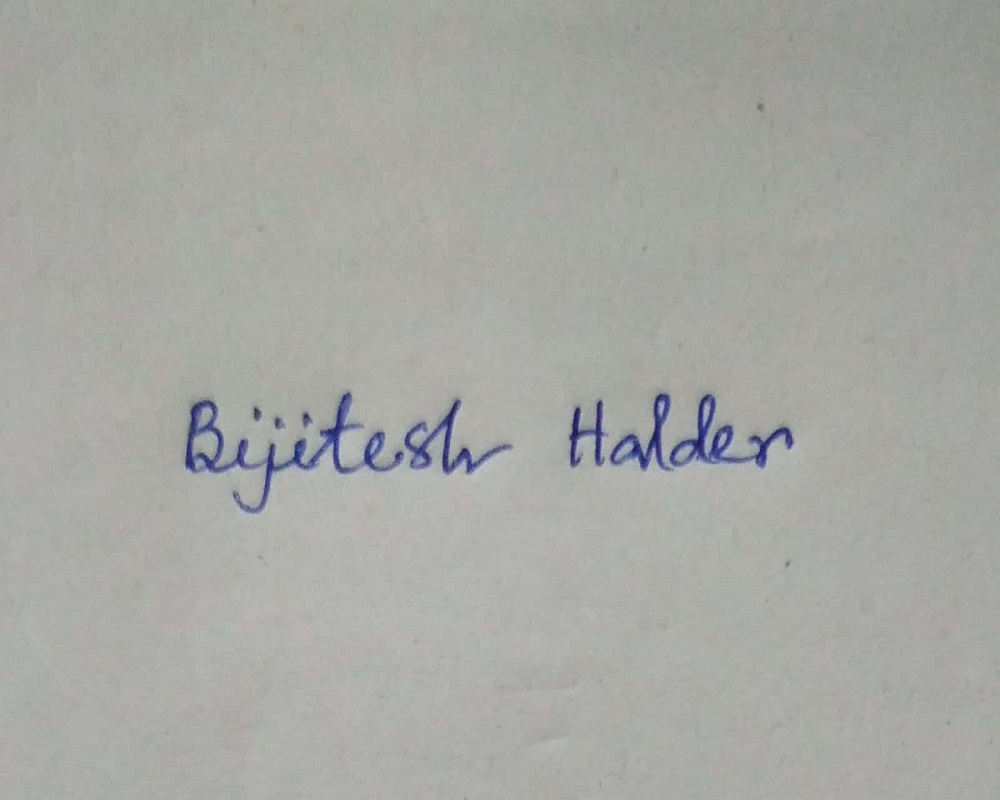 Bijitesh Halder